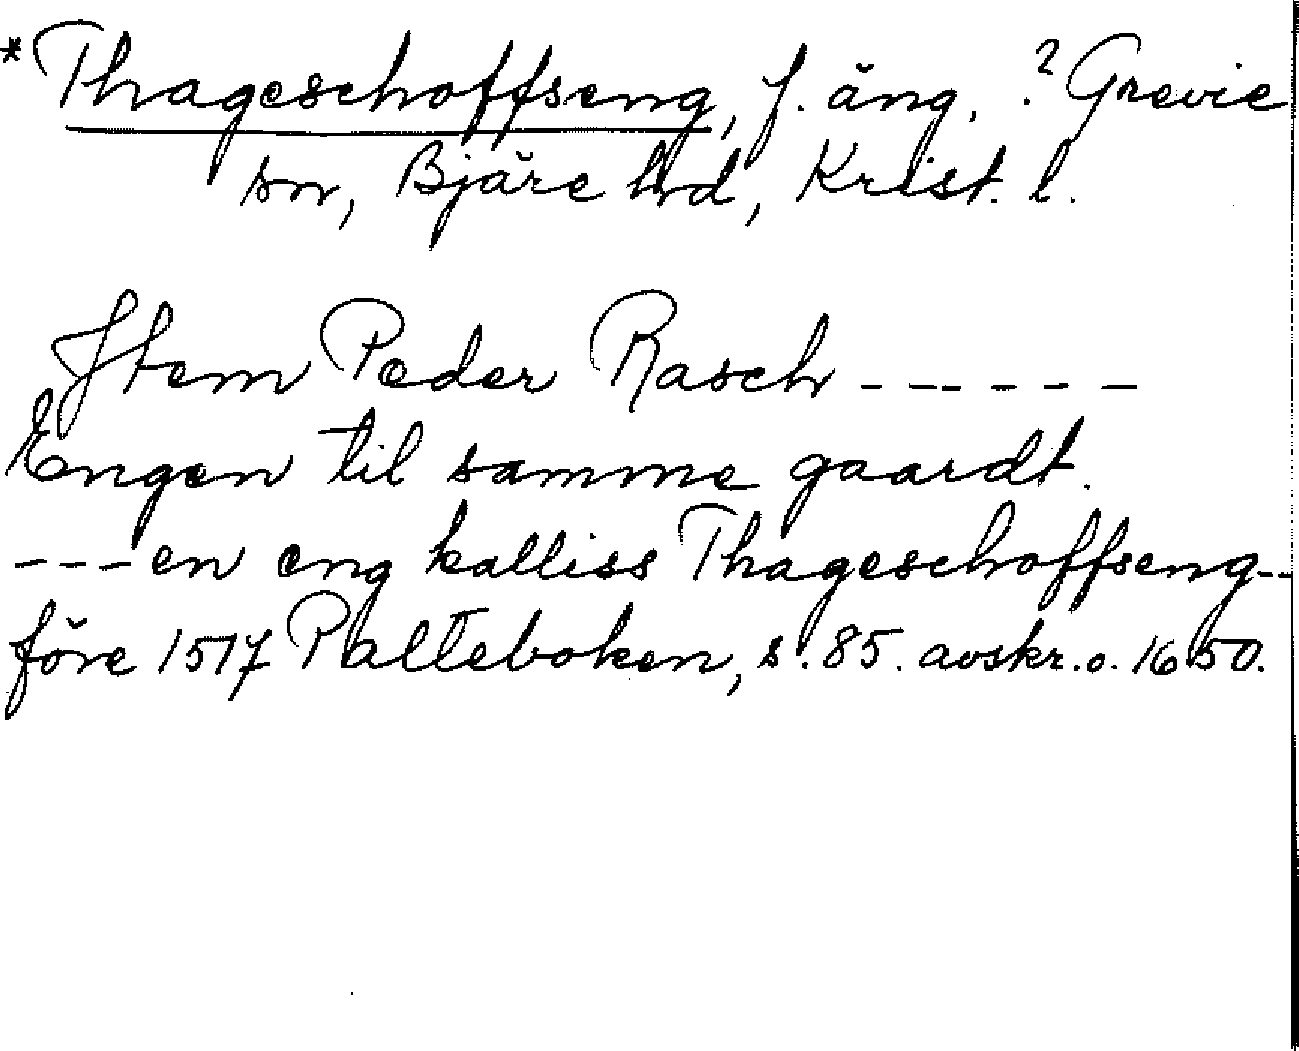 *Thageschoffseng, f. äng. ? Grevie
sn, Bjäre hd, Krist. l.
Item Peder Rasch ------
Engen til samme gaardt.
---en eng kalliss Thageschoffseng--
före 1517 Palteboken, s. 85. avskr. o. 1650.